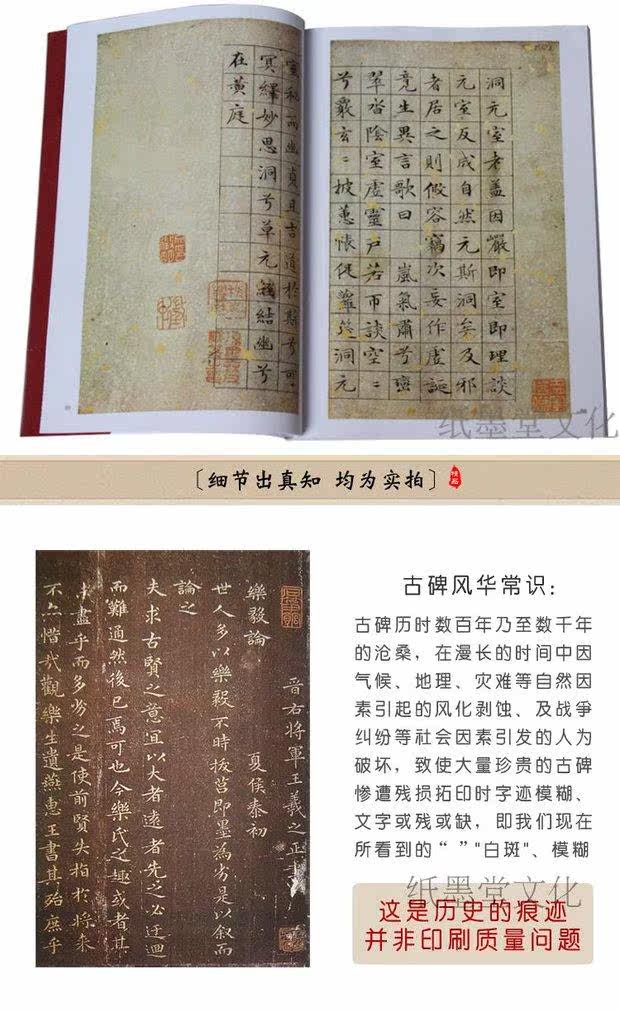 洞元室者蓋因巖即室即理談
元室反成自然元斯洞矣及邪
者居之則假容竊次妄作虛誕
竞生異言歌曰 嵐氣肅兮巒
翠沓陰室虛靈戶若市談空〻
兮覈玄〻披蕙帳促蘿筵洞元
室秘而幽貞且吉道於斯兮可〻
冥繹妙思洞兮草元結幽兮
在黄庭
纸墨堂文化
〔细节出真知 均为实拍〕
晉右將軍王羲之正書
樂毅論 夏侯泰初
世人多以樂毅不時拔莒即墨為劣是以叙而
論之
夫求古賢之意宜以大者遠者先之必迂迴
而難通然後已焉可也今樂氏之趣或者其
未盡乎而多劣之是使前賢失指於將来
不亦惜哉觀樂生遺燕惠王書其殆庶乎
古碑风华常识：
古碑历时数百年乃至数千年
的沧桑，在漫长的时间中因
气候、地理、灾难等自然因
素引起的风化剥蚀、及战争
纠纷等社会因素引发的人为
破坏，致使大量珍贵的古碑
惨遭残损拓印时字迹模糊、
文字或残或缺，即我们现在
所看到的“ ”"白斑"、模糊
纸墨堂文化
这是历史的痕迹
并非印刷质量问题